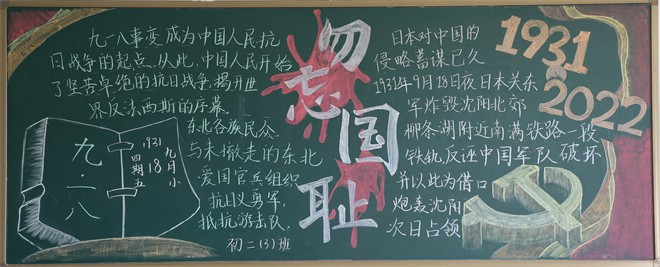 九一八事变成为中国人民抗
日战争的起点.从此,中国人民开始
了坚苦卓绝的抗日战争,揭开世
界反法西斯的序幕.
九·一八
1931
四期五
18
九月小
东北各族民众,
与未撤走的东北
爱国官兵组织
抗日义勇军,
抵抗游击队,
初二(3)班
勿忘国耻
日本对中国的
侵略蓄谋已久
1931年9月18日夜日本关东
军炸毁沈阳北郊
柳条湖附近南满铁路一段
铁轨反诬中国军队破坏
并以此为借口
炮轰沈阳
次日占领
1931
2022